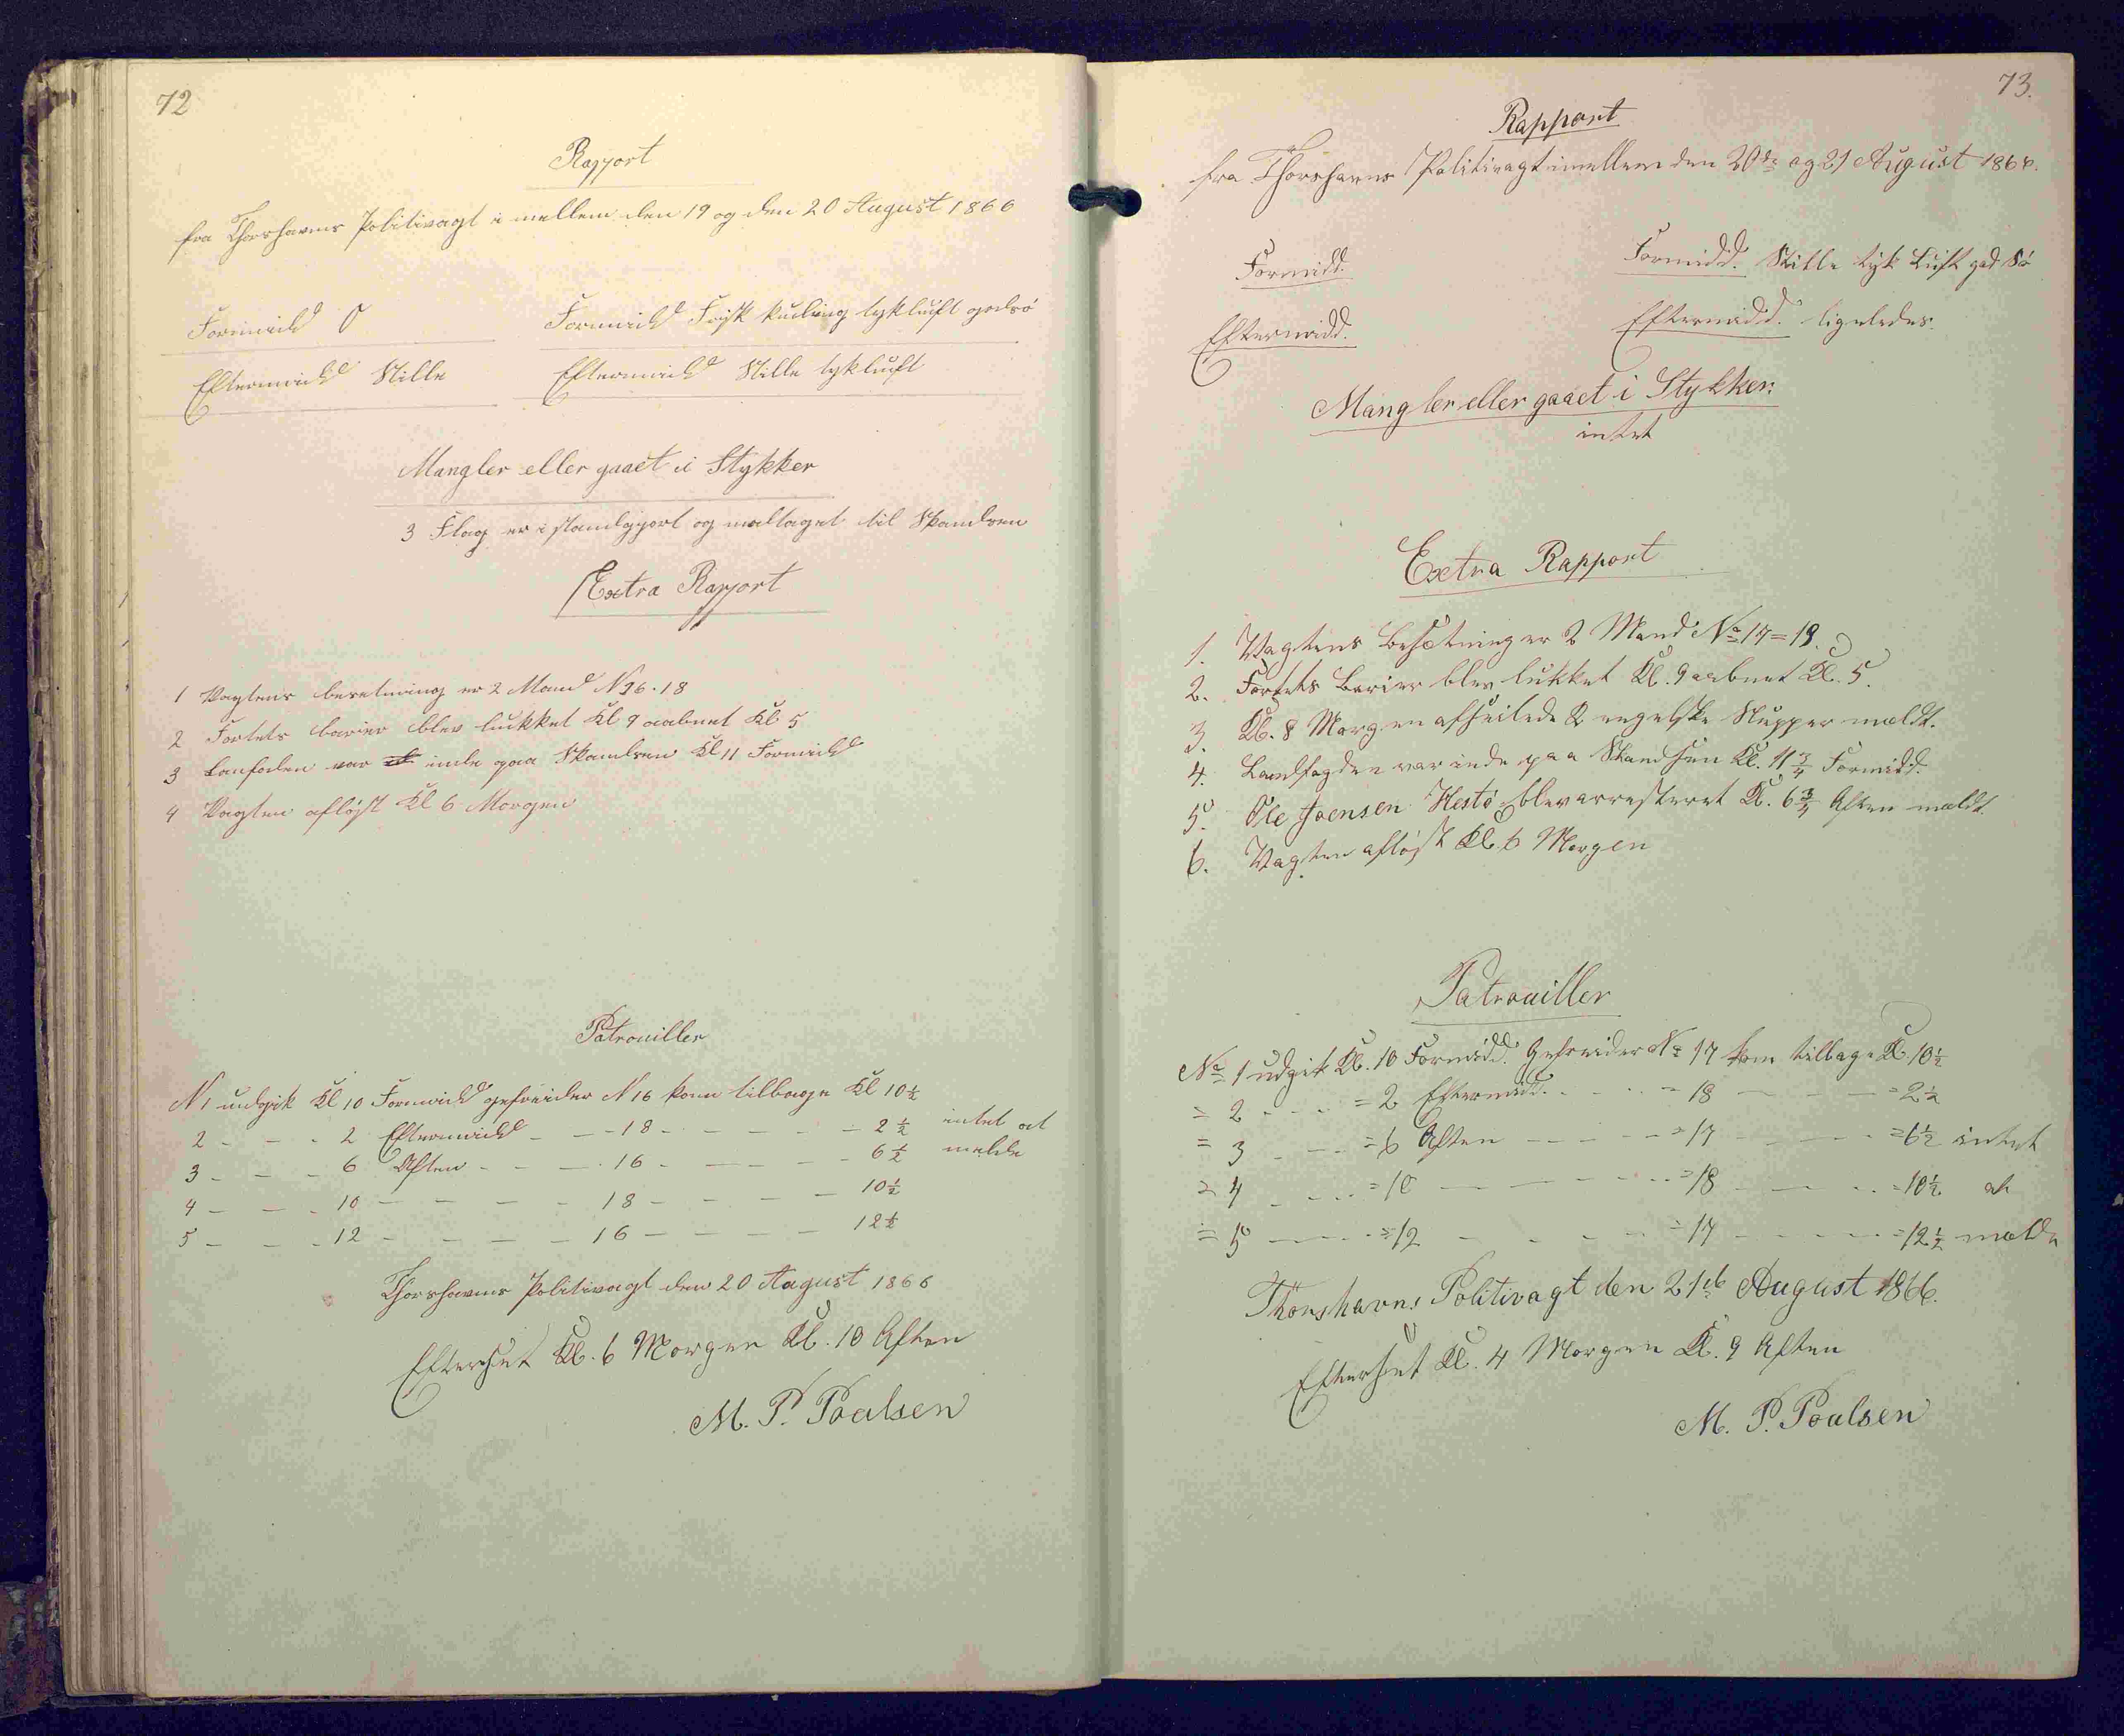 72
Rapport
fra Thorshavns Politivagt i mellem den 19 og den 20 August 1866
Formidd O
Formidd Frisk kuling tykluft godsö
Eftermidd Stille
Eftermidd Stille tykluft
Mangler eller gaaet i Stykker
3 Flag er istandgjort og maltaget til Skandsen
Extra Rapport
1 Vagtens besetning er 2 Mand N 16 . 18
2 Fortets barier blev lukket Kl 9 aabnet Kl 5
3 Lanfoden var inde paa Skandsen Kl 11 Formidd
4 Vagten afløst Kl 6 Morgen
Patrouiller
N 1 udgik Kl 10 Formidd gefreider N 16 kom tilbage Kl 10½
2 - - - 2 Eftermidd - - - 18 - - - - - 2½ intet at
3 - - - 6 Aften - - - 16 - - - - - 6½ melde
4 - - - 10 - - - - - 18 - - - - - 10½
5 - - - 12 - - - - - 16 - - - - - 12½
Thorshavns Politivagt den 20 August 1866
Efterset Kl. 6 Morgen Kl. 10 Aften
M. P. Poulsen
73.
Rapport
fra Thorshavns Politivagt imellem den 20de og 21 August 1866.
Formidd.
Formidd. Stille tyk Luft god Sö
Eftermidd.
Eftermidd. ligeledes.
Mangler eller gaaet i Stykker:
intet
Extra Rapport
1. Vagtens Besætning er 2 Mand No 17 = 18.
2. Fortets Barier blev lukket Kl. 9 aabnet Kl. 5.
3. Kl. 8 Morgen afseilede 2 engelske Slupper mældt.
4. Landfogden var inde paa Skandsen Kl. 11¾ Formidd.
5. Ole Joensen Hestö blev arresteret Kl. 6¾ Aften mældt.
6. Vagten afløst Kl. 6 Morgen
Patrouiller
No 1 udgik Kl. 10 Formidd. Gefreider No 17 kom tilbage Kl. 10½
= 2 - - - = 2 Eftermidd. - - - = 18 - - - = 2½
= 3 - - - = 6 Aften - - - - = 17 - - - = 6½ intet
= 4 - - - = 10 - - - - - = 18 - - - = 10½ at
= 5 - - - = 12 - - - - = 17 - - - = 12½ mælde
Thorshavns Politivagt den 21de August 1866.
Efterset Kl. 4 Morgen Kl. 9 Aften
M. P. Poulsen